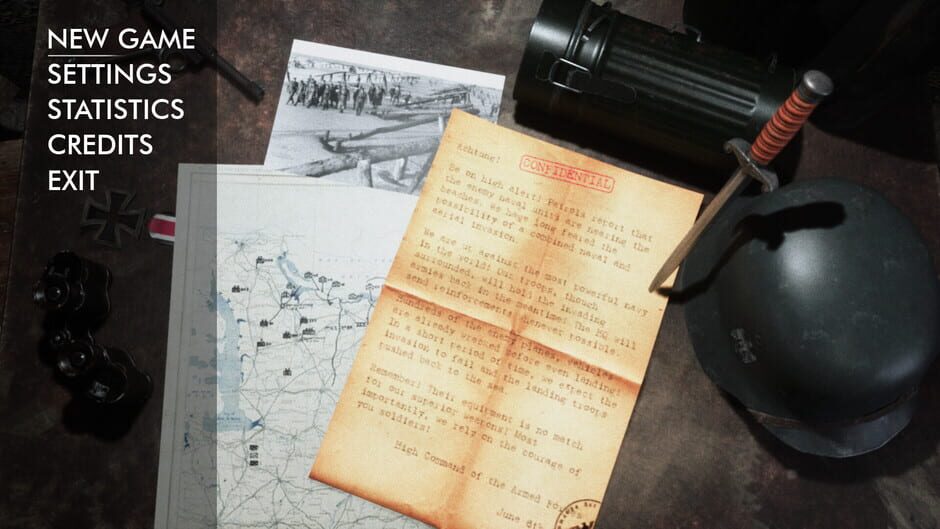 NEW GAME
SETTINGS
STATISTICS
CREDITS
EXIT
Achtung!
CONFIDENTIAL
Be on high alert! Patrols report that
the enemy naval units are nearing the
beaches. We have long feared the
possibility of a combined naval and
aerial invasion.
We are up against the most powerful navy
in the world! Our troops, though
surrounded, will hold the invading
armies back in the meantime! The HQ will
send reinforcements whenever possible.
Hundreds of the enemy planes, vehicles
are already wrecked before even landing!
In a short period of time, we expect the
invasion to fail and the landing troops
pushed back to the sea.
Remember! Their equipment is no match
for our superior weapons! Most
importantly, we rely on the courage of
you soldiers!
High Command of the Armed
June 6th